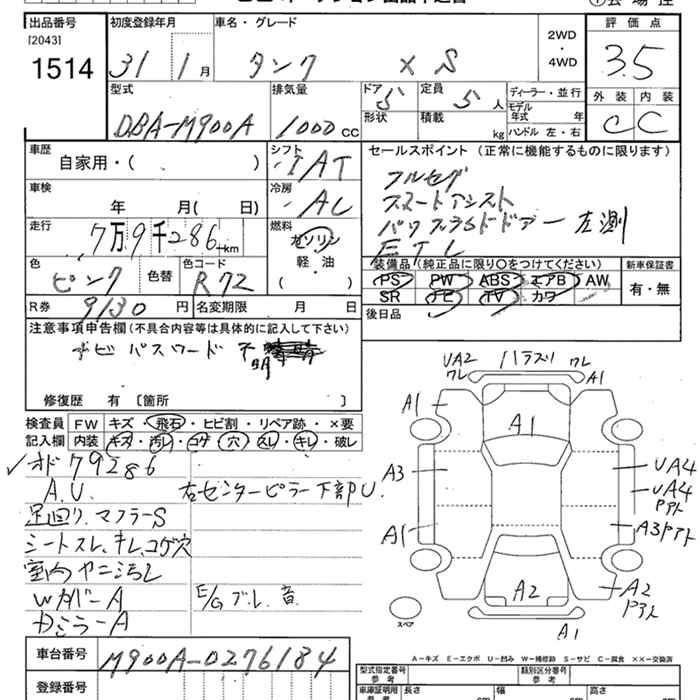 出品番号 初度登録年月 車名・グレード 2WD・4WD 評価点
[2043]
1514 31 1月 タンク X S 3.5
型式 排気量 ドア 定員 ディーラー・並行 外装 内装
DBA-M900A 1000 CC 5 5人 モデル年式 年 C C
形状 積載 kg ハンドル 左・右
車歴 シフト セールスポイント (正常に機能するものに限ります)
自家用・( ) IAT フルセグ
車検 冷房 スマートアシスト
年 月( 日) AC パワスラドドアー 左測
走行 燃料 ETC
7万9千286km ガソリン
軽・油
( )
装備品 (純正品に限り○をつけてください) 新車保証書
色 色替 色コード PS PW ABS エアB AW 有・無
ピンク R72 SR ナビ TV カワ
R券 9130 円 名変期限 月 日 後日品
注意事項申告欄 (不具合内容等は具体的に記入して下さい)
ナビ パスワード 不明
修復歴 有 [箇所 ]
検査員 FW キズ・飛石・ヒビ割・リペア跡・×要
記入欄 内装 キズ・汚レ・コゲ・穴・スレ・キレ・破レ
✓オド79286
A.U. 右センターピラー下部U.
足回り.マフラーS
シートスレ、キレ、コゲ穴
室内ヤニ汚レ
WカバーA E/Gブレ.音.
カミラーA
UA2 ハラズリ ワレ
ワレ A1
A1 A1
A3 UA4
UA4
Pアト
A1 A3Pアト
A2 A2
Pアト
スペア A1
A−キズ E−エクボ U−凹み W−補修跡 S−サビ C−腐食 ××−交換済
車台番号 M900A-0276184 型式指定番号 類別区分番号
参考 参考
登録番号 車庫証明用 長さ 幅 高さ
参考 cm cm cm